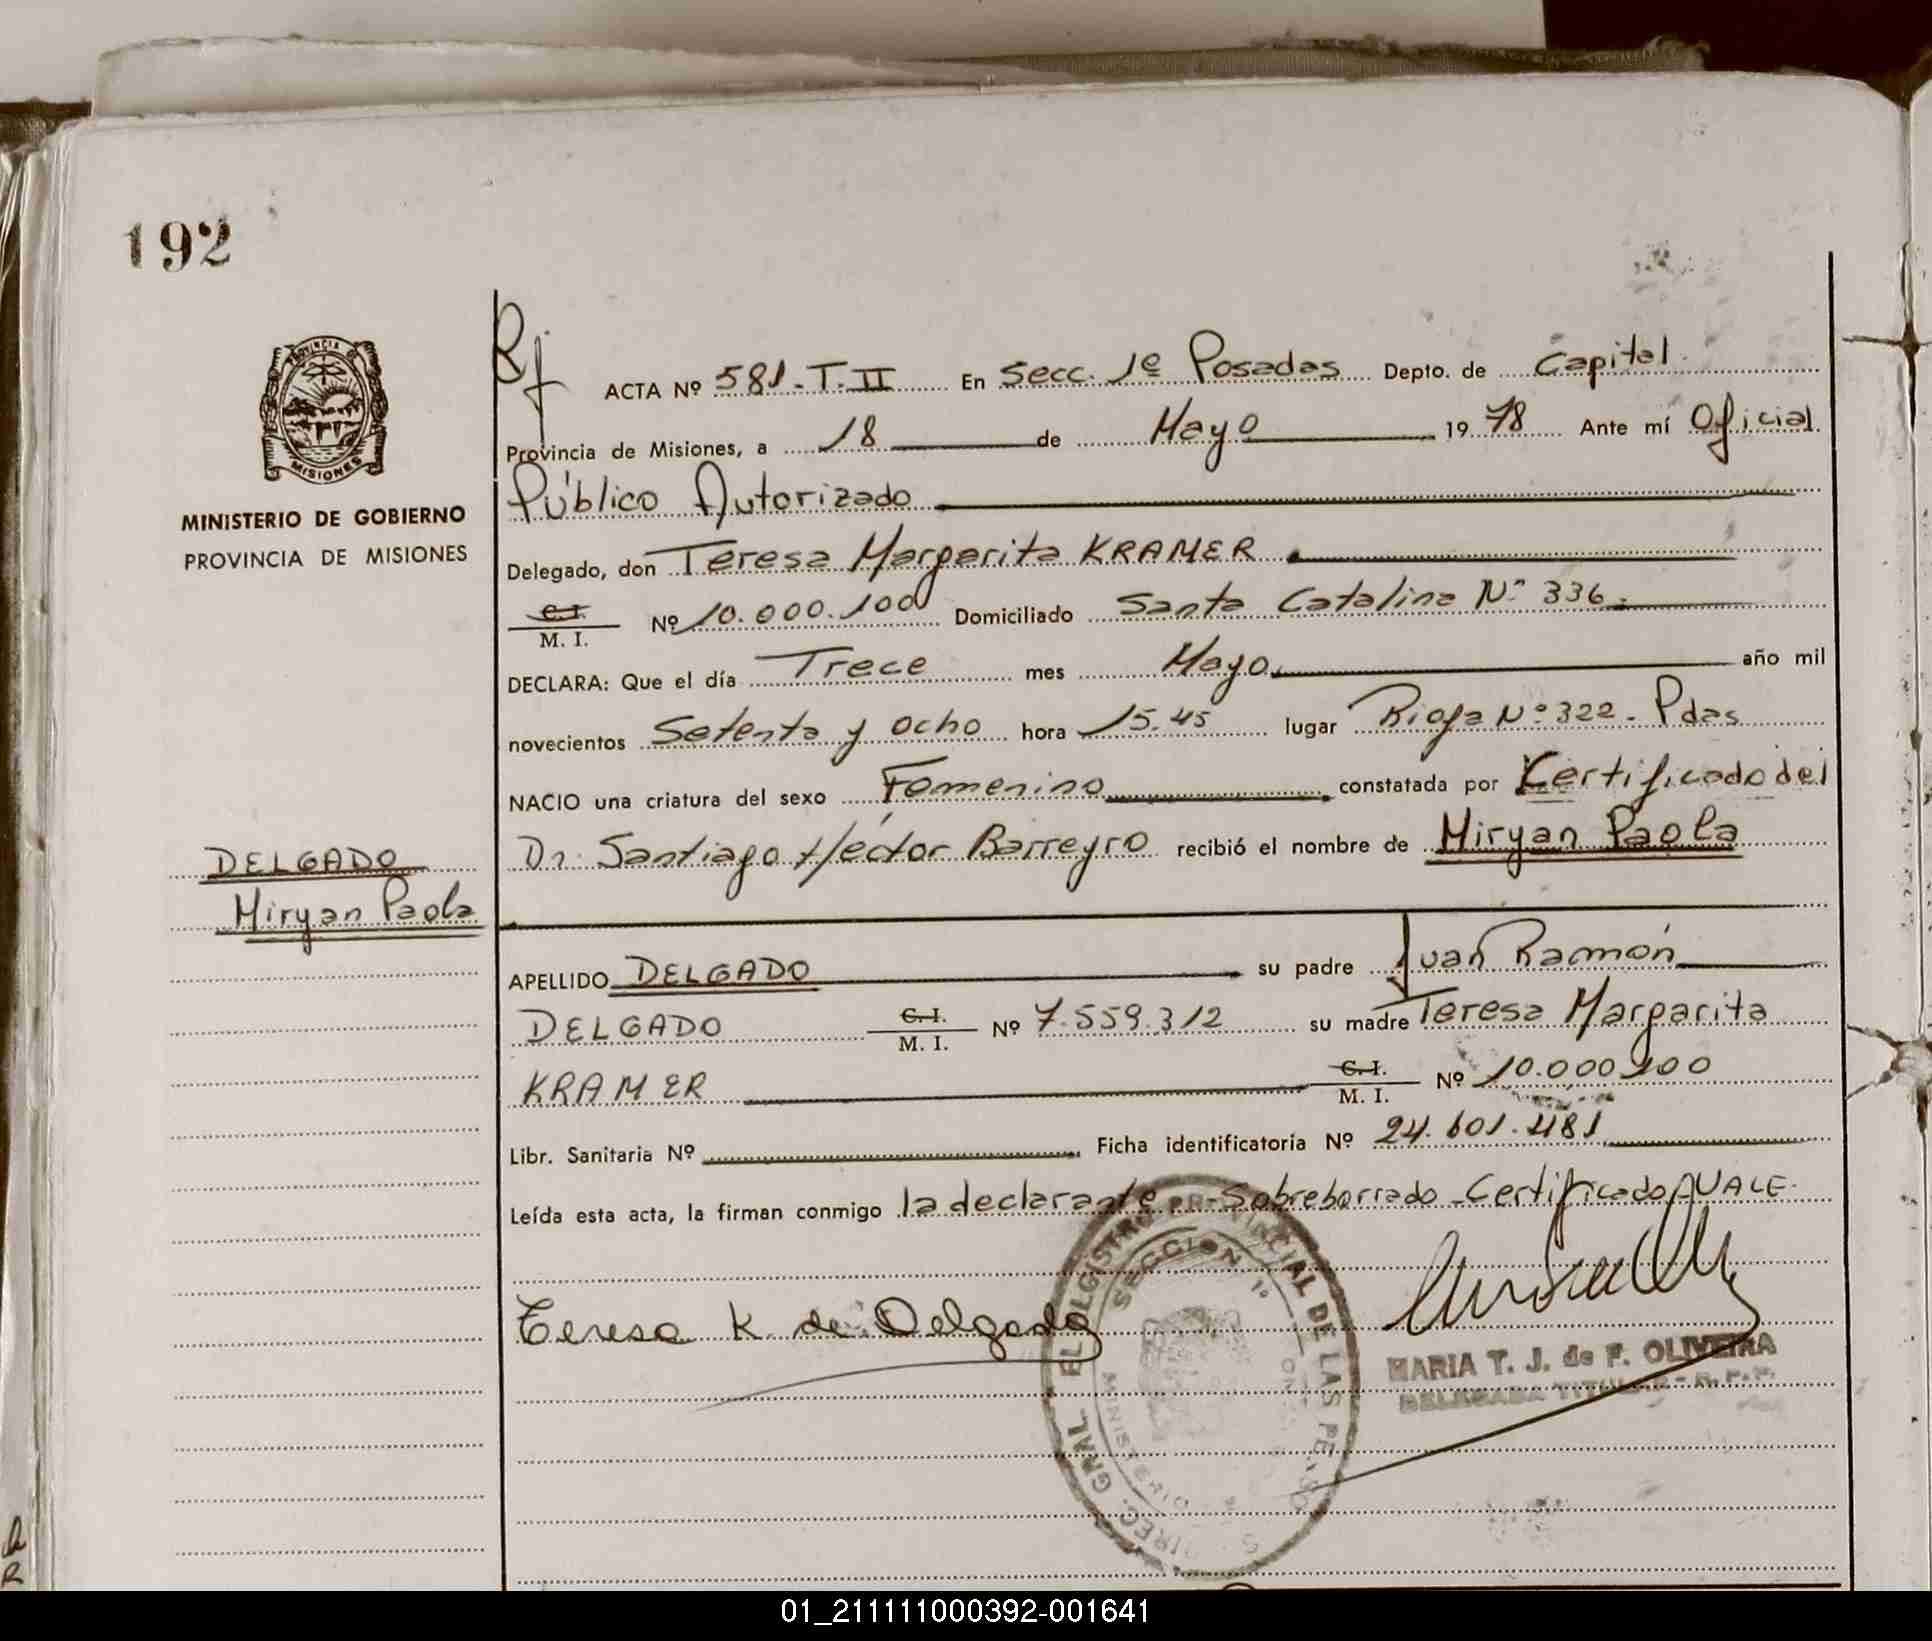 192
PROVINCIA DE
MISIONES
MINISTERIO DE GOBIERNO
PROVINCIA DE MISIONES
DELGADO
Miryan Paola
ACTA Nº 581-T.II En Secc. 1ª Posadas Depto. de Capital
Provincia de Misiones, a 18 de Mayo 1978 Ante mí Oficial
Público Autorizado
Delegado, don Teresa Margarita KRAMER
C.I.
M. I. Nº 10.000.100 Domiciliado Santa Catalina Nº 336
DECLARA: Que el día Trece mes Mayo año mil
novecientos Setenta y ocho hora 15.45 lugar Rioja Nº 322 - Pdas
NACIO una criatura del sexo Femenino constatada por Certificado del
Dr. Santiago Héctor Barreyro recibió el nombre de Miryan Paola
APELLIDO DELGADO su padre Juan Ramón
DELGADO C.I. M. I. Nº 7.559.312 su madre Teresa Margarita
KRAMER C.I. M. I. Nº 10.000.100
Libr. Sanitaria Nº Ficha identificatoria Nº 24.601.481
Leída esta acta, la firman conmigo la declarante - Sobreborrado - Certificado, VALE.
Teresa K de Delgado
MARIA T. J. de F. OLIVEIRA
DELEGADA TITULAR - R.P.P.
DIREC. GRAL. DEL REGISTRO PROVINCIAL DE LAS PERSONAS
SECCION 1º
01_211111000392-001641